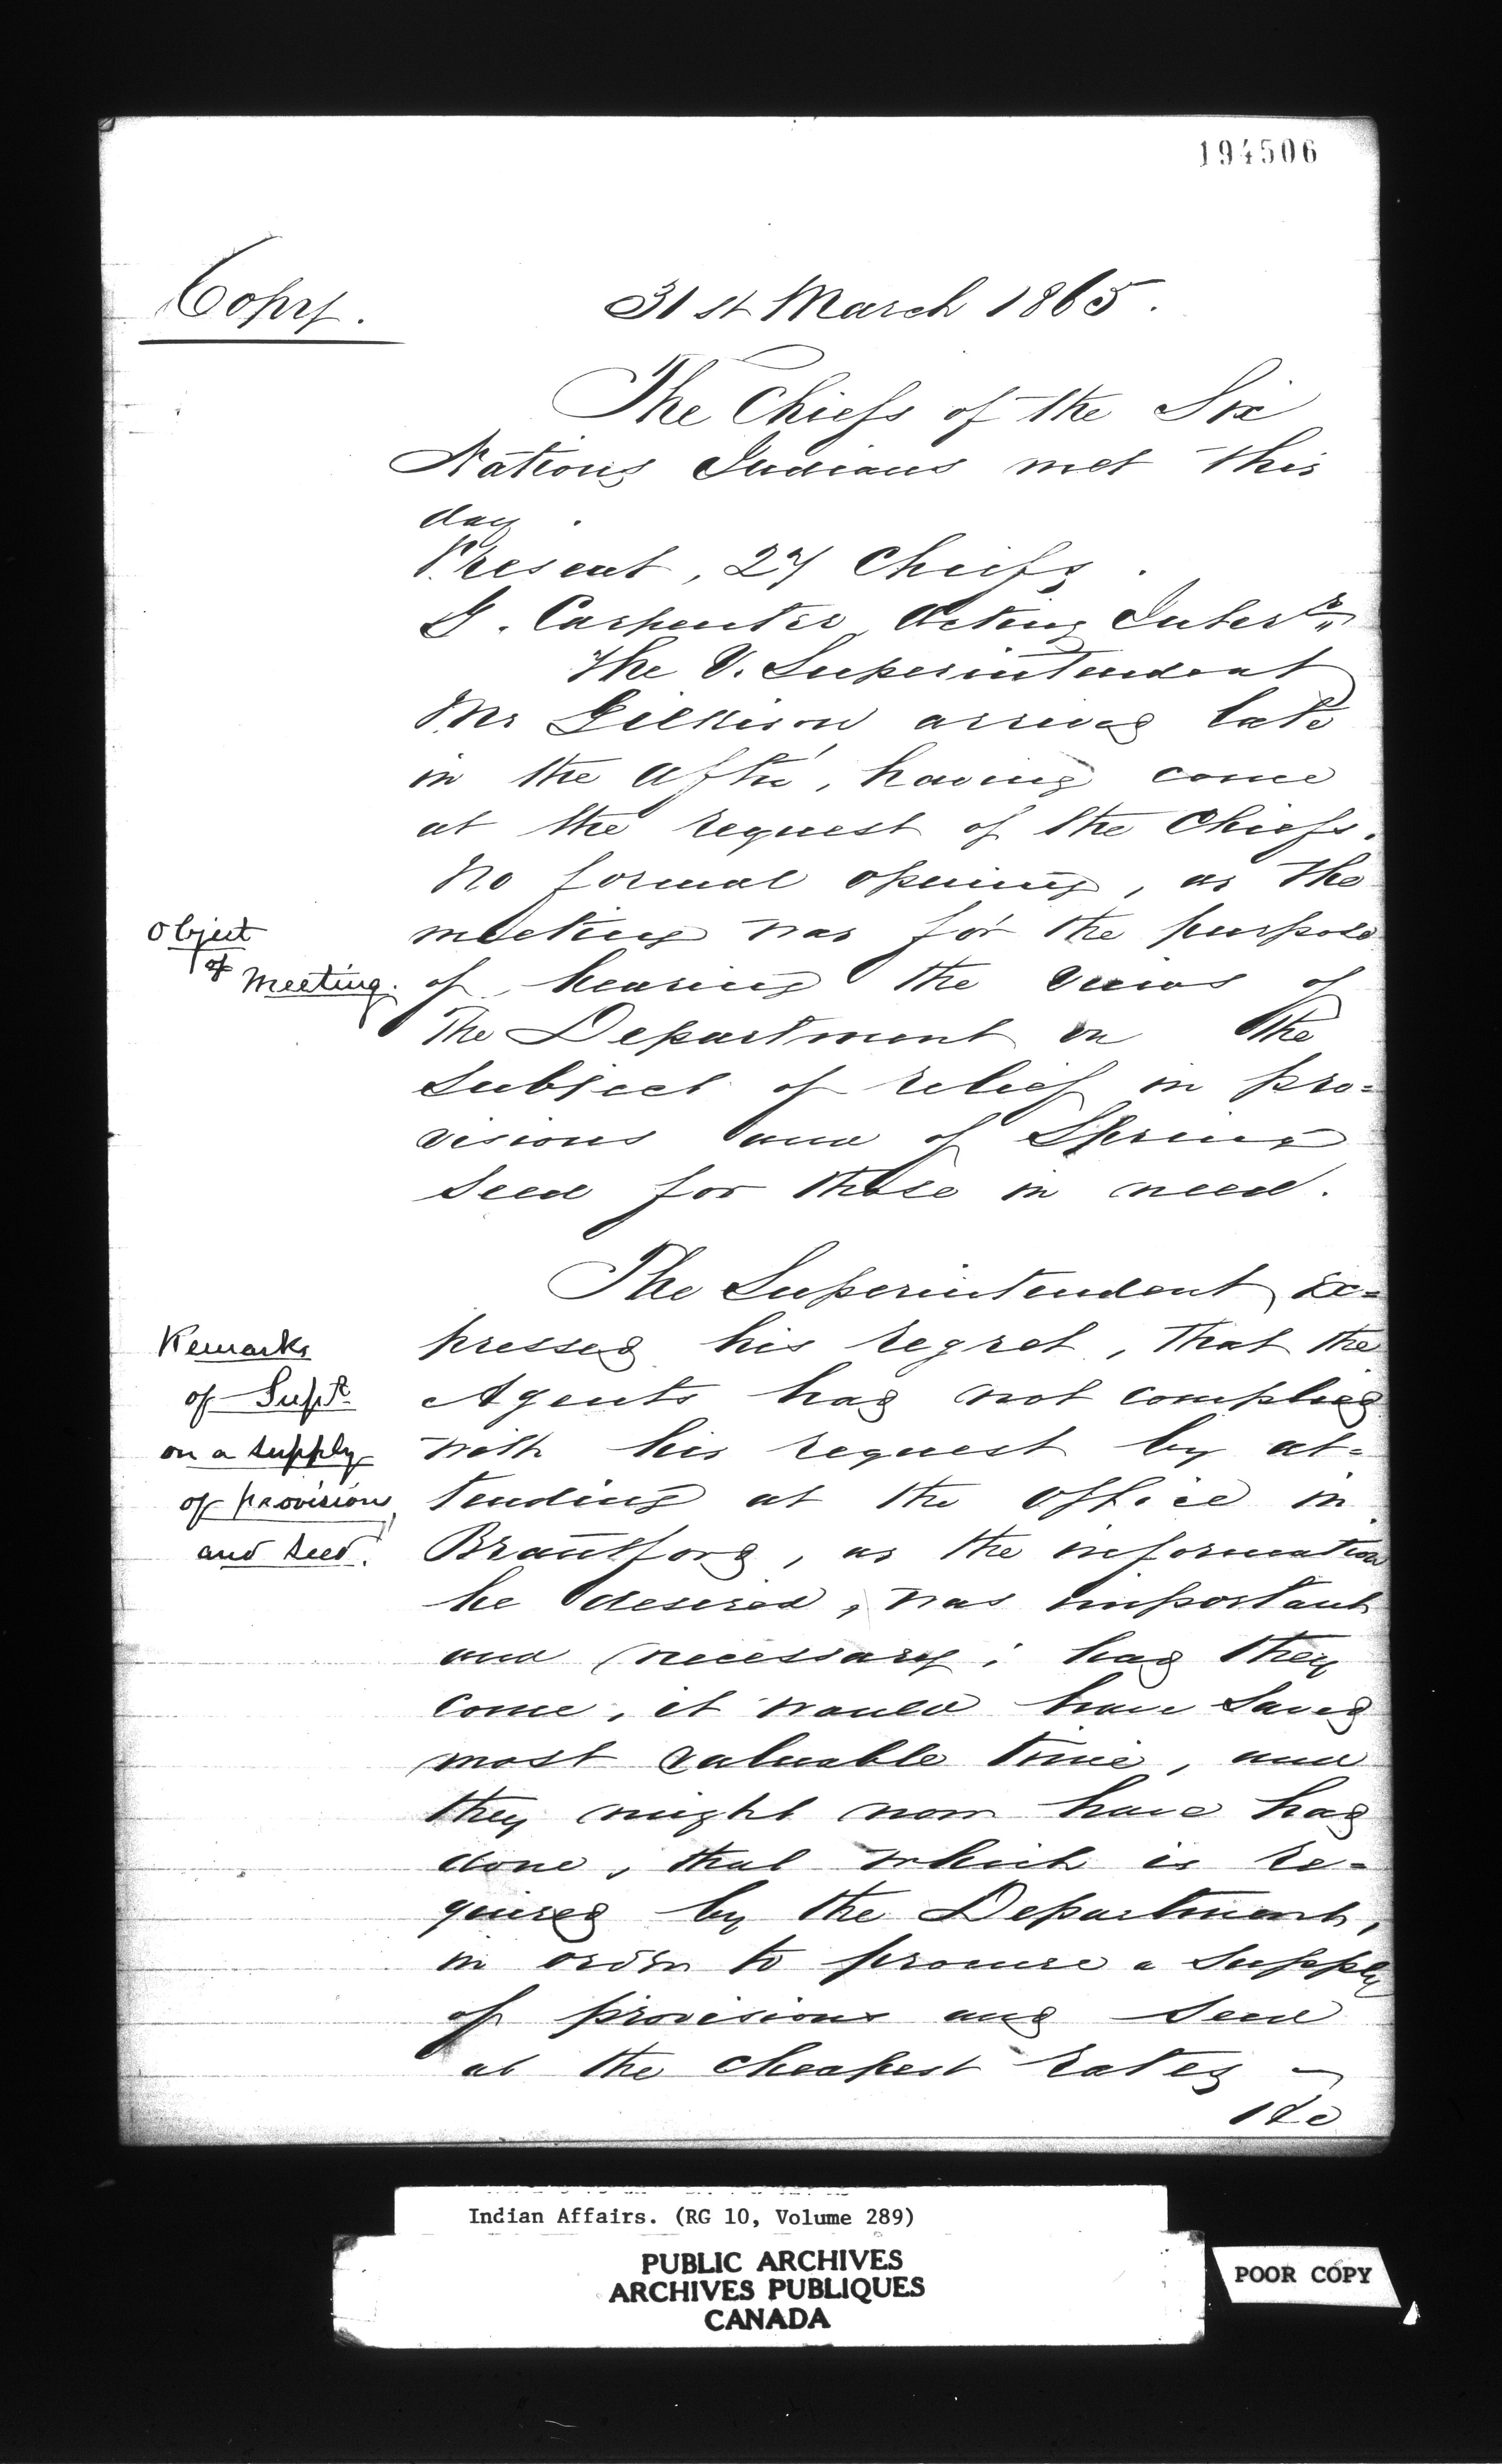 194506
Copy.
31st March 1865.
The Chiefs of the Six
Nations Indians met this
day.
Present, 27 Chiefs.
G. Carpenter Acting Inter^tr
The V. Superintendent
Mr Gilkison arrived late
in the aftn', having come
at the request of the Chiefs.
No formal opening, as the
Object
of
Meeting.
meeting was for the purpose
of hearing the views of
the Department on the
subject of relief in pro=
visions and of Spring
seed for those in need.
The Superintendent ex=
Remarks
of Supt.
on a supply
of provisions,
and seed.
pressed his regret, that the
Agents had not complied
with his request by at=
tending at the office in
Brantford, as the information
he desired, was important
and necessary; had they
come, it would have saved
most valuable time, and
they might now have had
done, that which is re=
quired by the Department,
in order to procure a supply
of provisions and seed
at the cheapest rates
Indian Affairs. (RG 10, Volume 289)
PUBLIC ARCHIVES
ARCHIVES PUBLIQUES
CANADA
POOR COPY